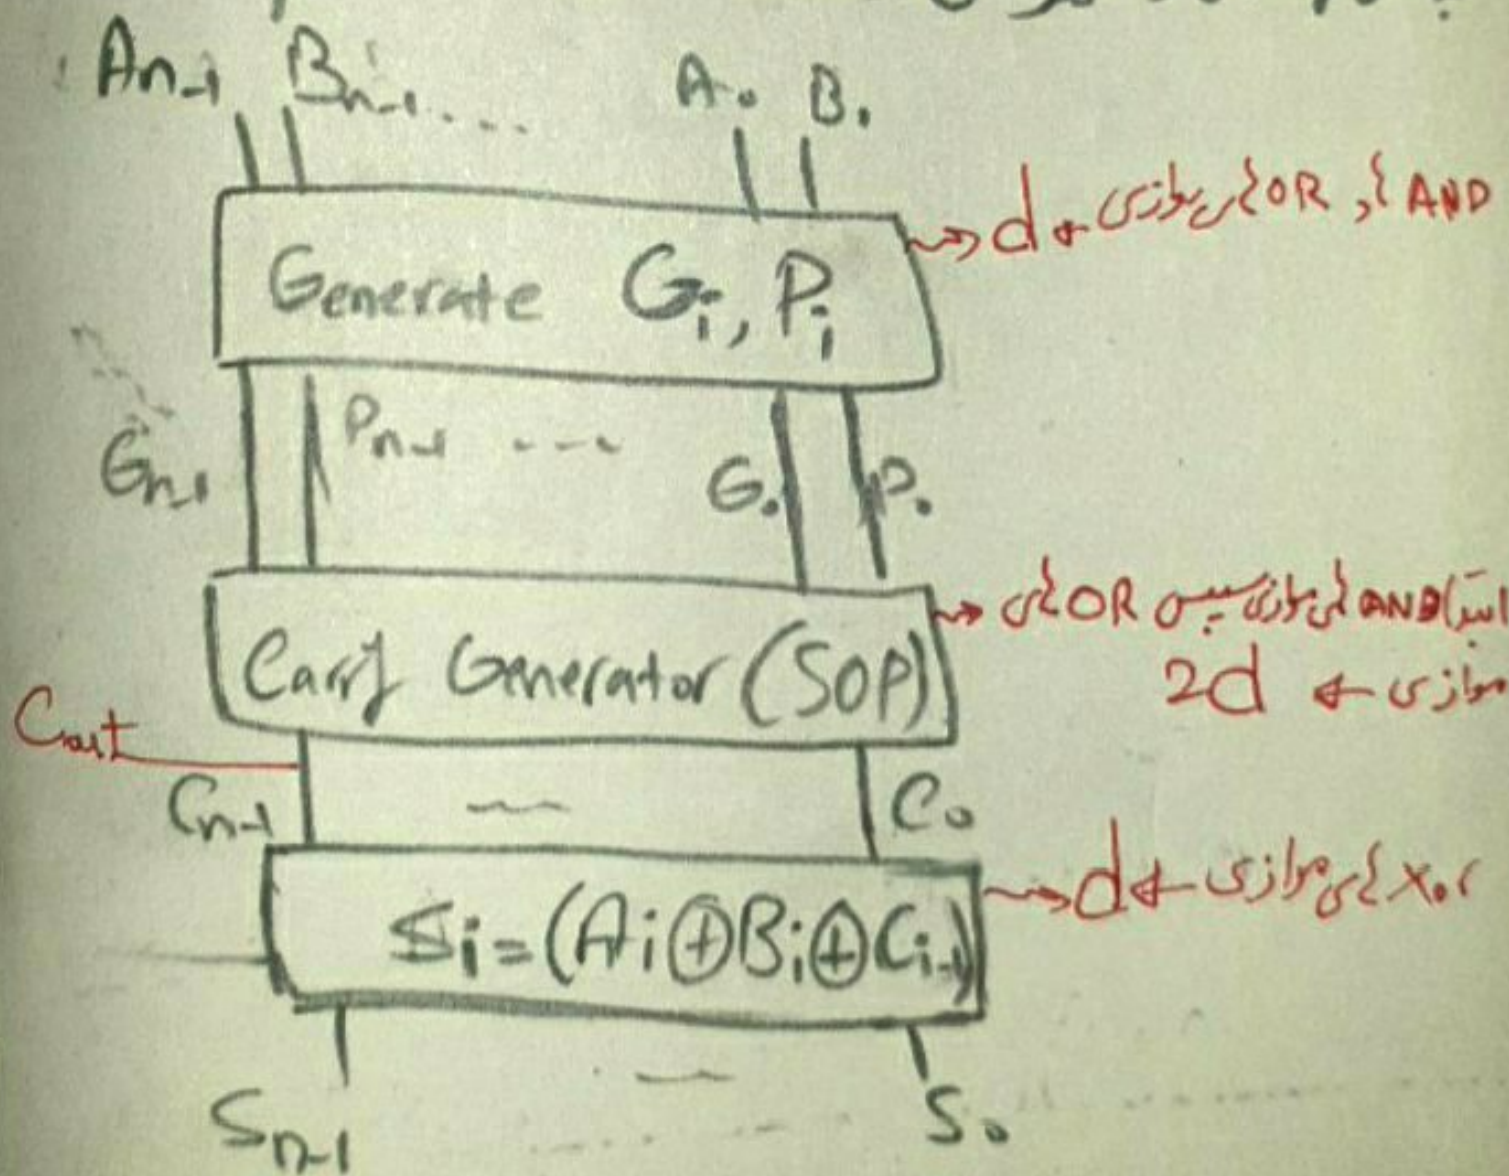 An-1 Bn-1.... A. B.
Generate Gi, Pi
d ← AND ها و OR های موازی
Gn-1 Pn-1 --- G. P.
Carry Generator (SOP)
ابتدا AND های موازی سپس OR های
موازی ← 2d
Cout
Cn-1 C.
Si=(Ai⊕Bi⊕Ci-1)
Xor های موازی ← d
Sn-1 S.